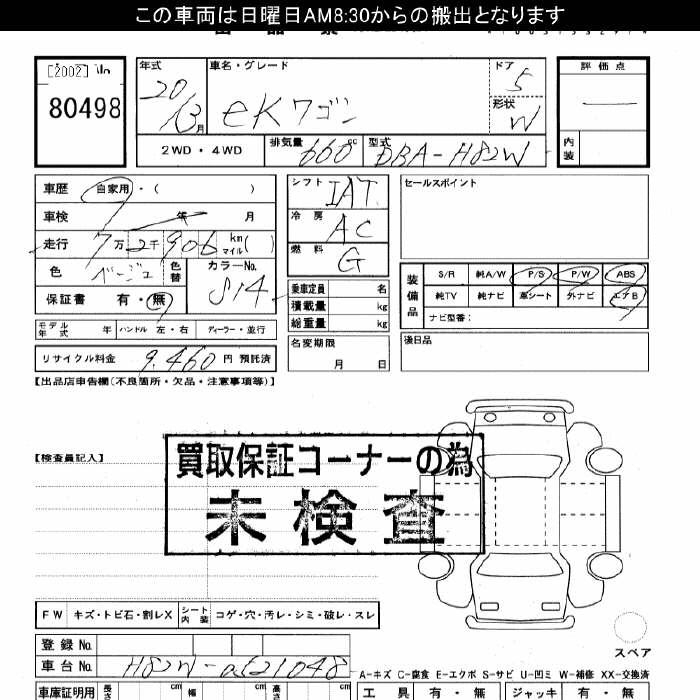 この車両は日曜日AM8:30からの搬出となります
[2002]
80498
年式 車名・グレード ドア 評価点
20/3月 eKワゴン 5 —
形状 W
2WD・4WD 排気量 660cc 型式 DBA-H82W 内装
車歴 自家用・( )
車検 年 月
走行 7万2千906 km マイル( )
色 ベージュ 色替 カラーNo. S14
保証書 有・無
モデル年式 年 ハンドル 左・右 ディーラー・並行
リサイクル料金 9,460 円 預託済
シフト IAT
冷房 AC
燃料 G
乗車定員 名
積載量 kg
総重量 kg
名変期限
月 日
セールスポイント
装備品 S/R 純A/W P/S P/W ABS
純TV 純ナビ 革シート 外ナビ エアB
ナビ型番:
後日品
【出品店申告欄(不良箇所・欠品・注意事項等)】
【検査員記入】
買取保証コーナーの為
未検査
FW キズ・トビ石・割レX シート内装 コゲ・穴・汚レ・シミ・破レ・スレ
スペア
登録No.
車台No. H82W-
A-キズ C-腐食 E-エクボ S-サビ U-凹ミ W-補修 XX-交換済
車庫証明用 長さ cm 幅 cm 高さ cm 工具 有・無 ジャッキ 有・無